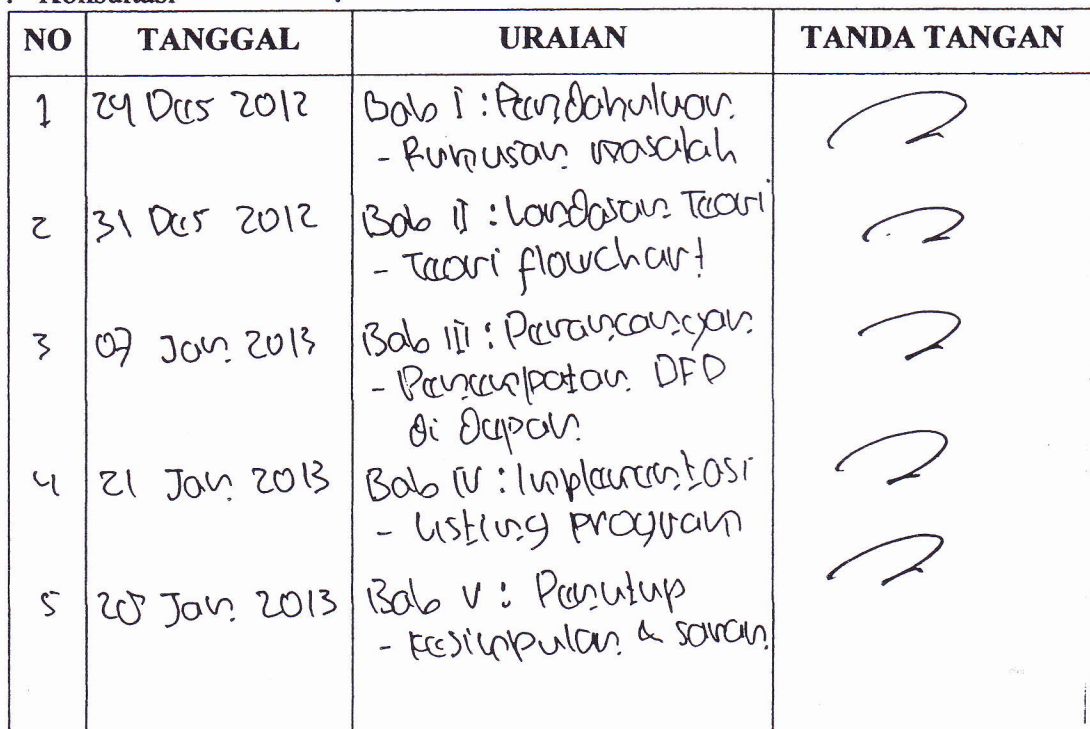 Konsultasi :
NO TANGGAL URAIAN TANDA TANGAN
1 24 Des 2012 Bab I : Pendahuluan
- Rumusan masalah
2 31 Des 2012 Bab II : Landasan Teori
- Teori flowchart
3 07 Jan 2013 Bab III : Perancangan
- Penempatan DFD
di depan
4 21 Jan 2013 Bab IV : Implementasi
- Listing program
5 Jan 2013 Bab V : Penutup
- Kesimpulan & saran